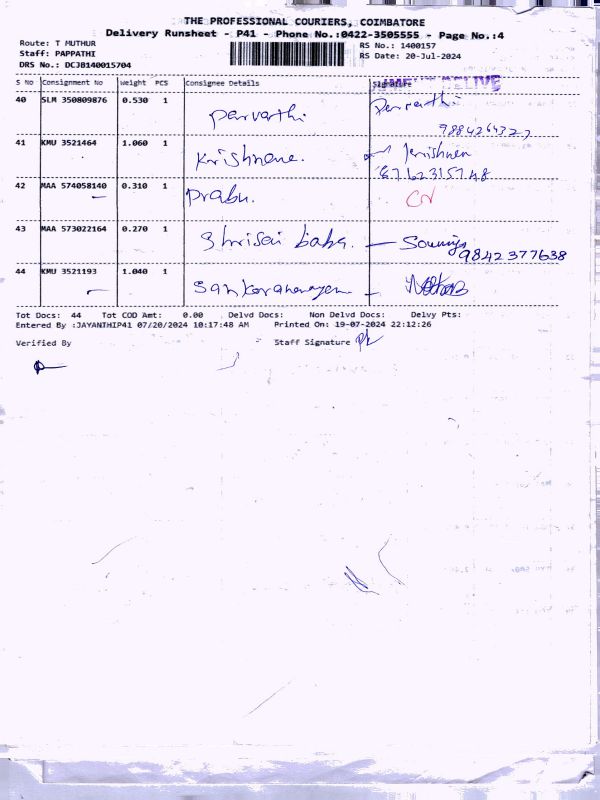 THE PROFESSIONAL COURIERS, COIMBATORE
Delivery Runsheet - P41 - Phone No.:0422-3505555 - Page No.:4
Route: T MUTHUR
RS No.: 1400157
Staff: PAPPATHI
RS Date: 20-Jul-2024
DRS No.: DCJB140015704
S No Consignment No Weight PCS Consignee Details Signature
40 SLM 350809876 0.530 1 parvathi Parvathi
41 KMU 3521464 1.060 1 Krishnane.
42 MAA 574058140 0.310 1 prabu.
43 MAA 573022164 0.270 1 Shrisai baba. Sowmiya
9842377638
44 KMU 3521193 1.040 1 Sankaranarayanan
Tot Docs: 44 Tot COD Amt: 0.00 Delvd Docs: Non Delvd Docs: Delvy Pts:
Entered By :JAYANTHIP41 07/20/2024 10:17:48 AM Printed On: 19-07-2024 22:12:26
Verified By Staff Signature